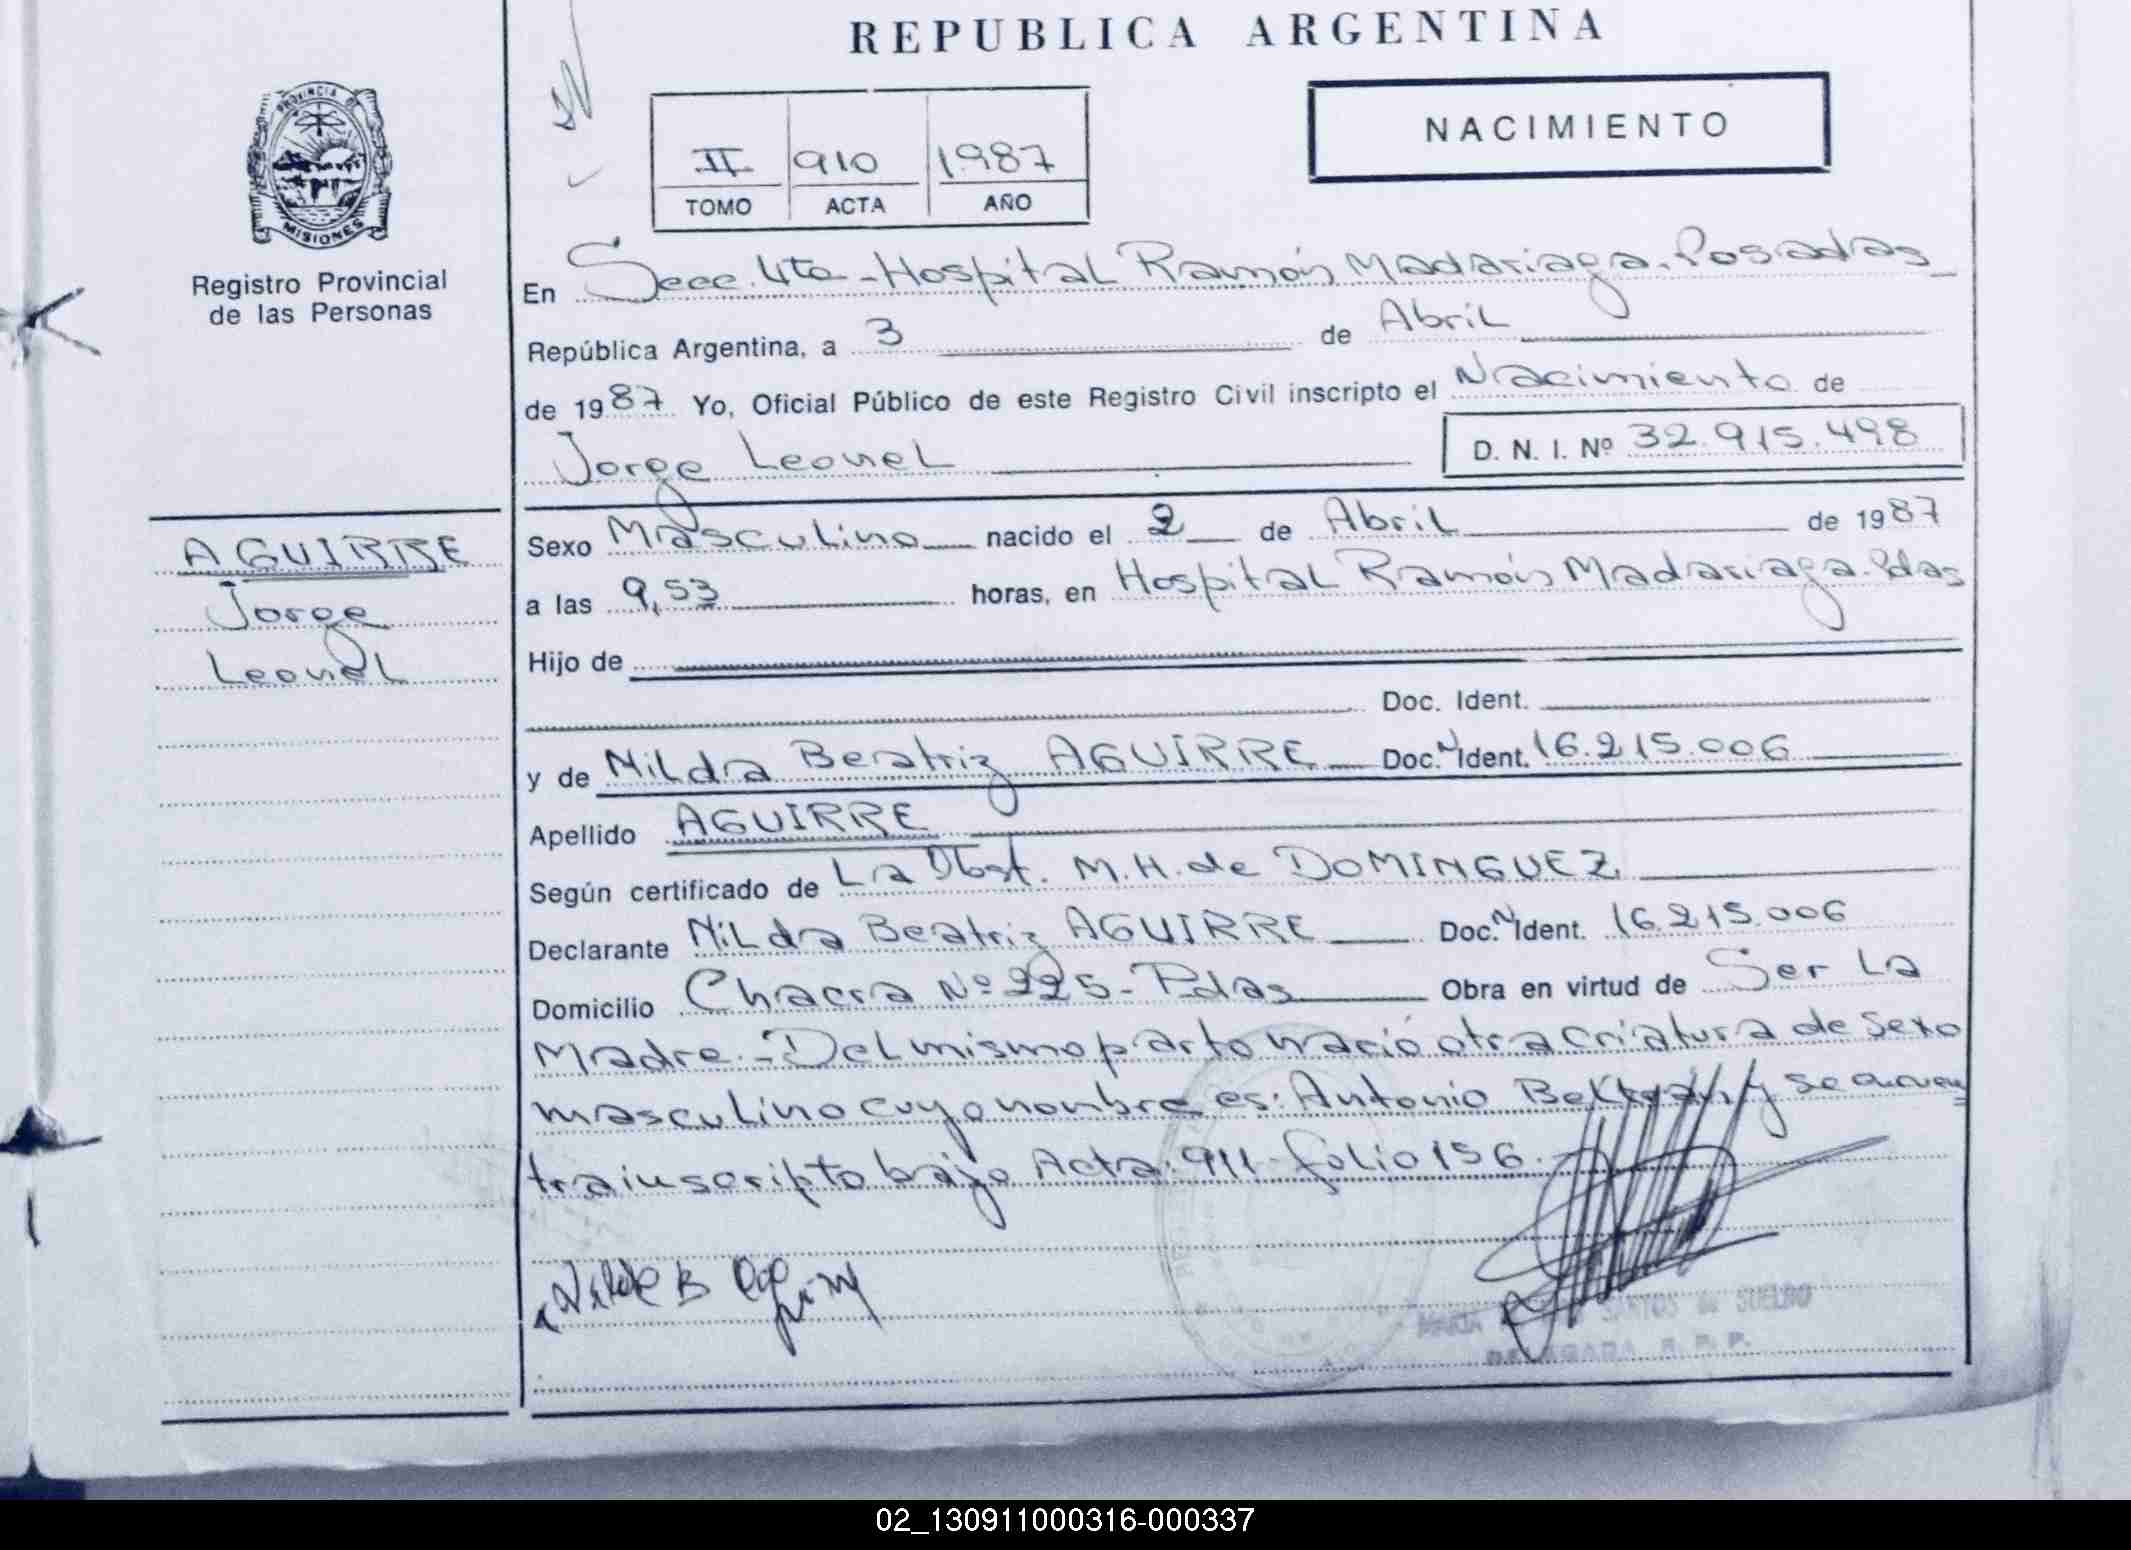 REPUBLICA ARGENTINA
PROVINCIA DE
MISIONES
Registro Provincial
de las Personas
II 910 1987
TOMO ACTA AÑO
NACIMIENTO
En Secc. 4ta - Hospital Ramón Madariaga. Posadas
República Argentina, a 3 de Abril
de 1987 Yo, Oficial Público de este Registro Civil inscripto el Nacimiento de
Jorge Leonel D. N. I. Nº 32.915.498
AGUIRRE
Jorge
Leonel
Sexo Masculino nacido el 2 de Abril de 1987
a las 9,53 horas, en Hospital Ramón Madariaga. Pdas
Hijo de
Doc. Ident.
y de Nilda Beatriz AGUIRRE Doc. N Ident. 16.215.006
Apellido AGUIRRE
Según certificado de La Obst. M.H. de DOMINGUEZ
Declarante Nilda Beatriz AGUIRRE Doc. N Ident. 16.215.006
Domicilio Chacra Nº 225 - Pdas Obra en virtud de Ser La
Madre. - Del mismo parto nació otra criatura de sexo
masculino cuyo nombre es: Antonio Beltran y se encuen
tra inscripto bajo Acta: 911 - folio 156. -
Nilda B
MARIA SANTOS de SUELDO
DELEGADA R. P. P.
02_130911000316-000337